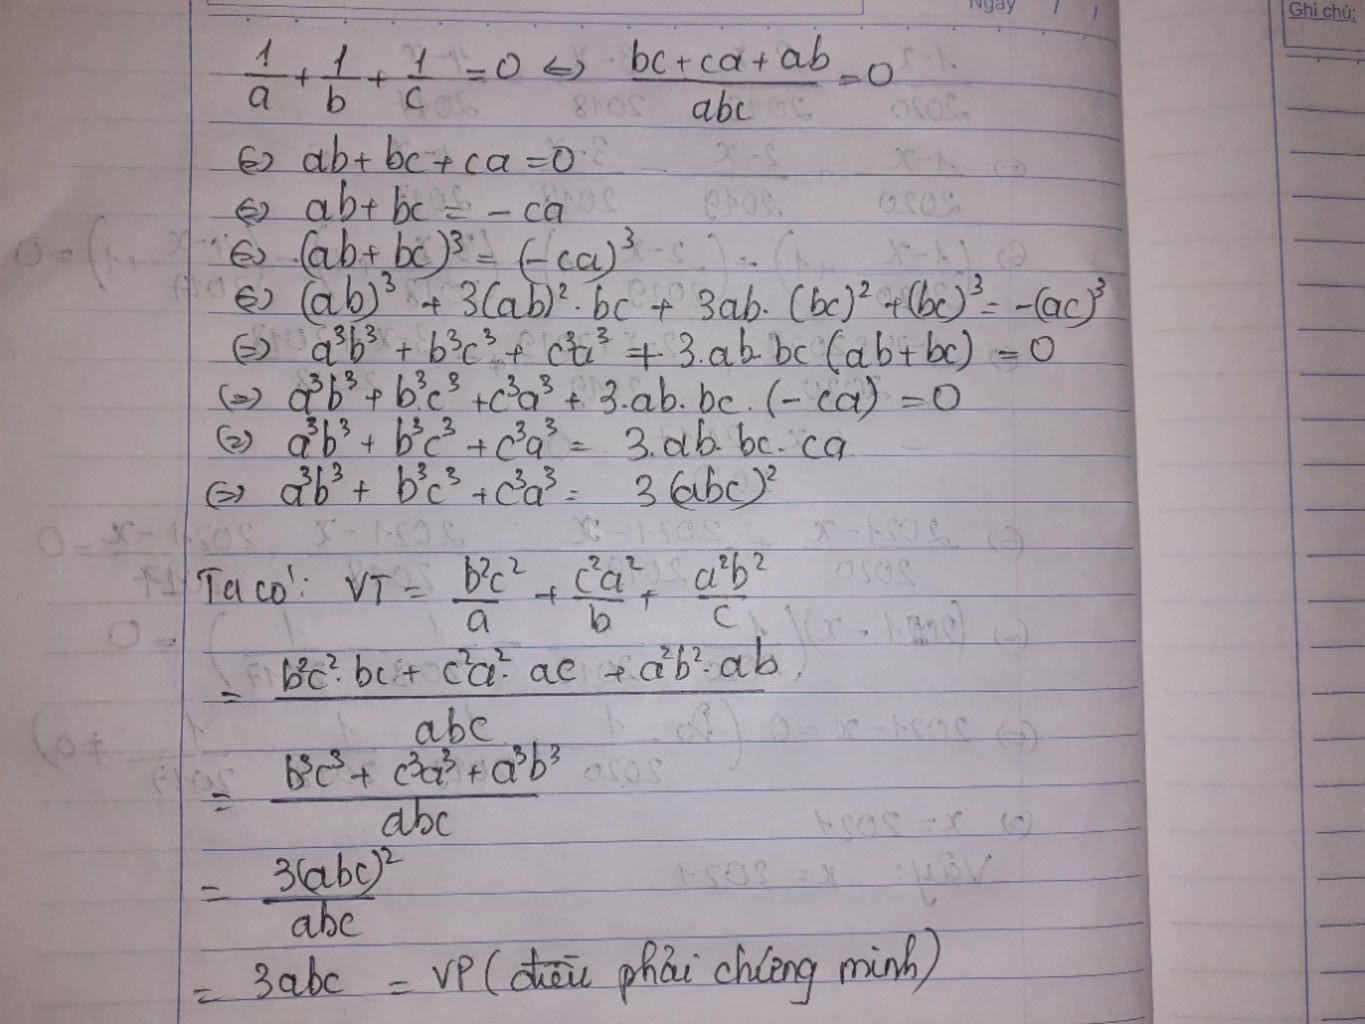 Ngày / /
Ghi chú:
1/a + 1/b + 1/c = 0 <=> (bc + ca + ab)/abc = 0
<=> ab + bc + ca = 0
<=> ab + bc = - ca
<=> (ab + bc)³ = (- ca)³
<=> (ab)³ + 3(ab)². bc + 3ab. (bc)² + (bc)³ = -(ac)³
<=> a³b³ + b³c³ + c³a³ + 3.ab.bc (ab + bc) = 0
<=> a³b³ + b³c³ + c³a³ + 3.ab.bc. (- ca) = 0
<=> a³b³ + b³c³ + c³a³ = 3.ab.bc.ca
<=> a³b³ + b³c³ + c³a³ = 3(abc)²
Ta có: VT = b²c²/a + c²a²/b + a²b²/c
= (b²c².bc + c²a².ac + a²b².ab)/abc
= (b³c³ + c³a³ + a³b³)/abc
= 3(abc)²/abc
= 3abc = VP (điều phải chứng minh)